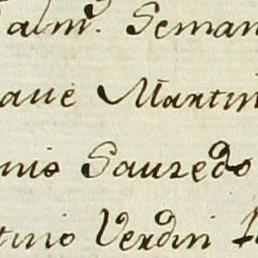 alm. Seman
aue Martin
nio Sauzedo
tino Verdin